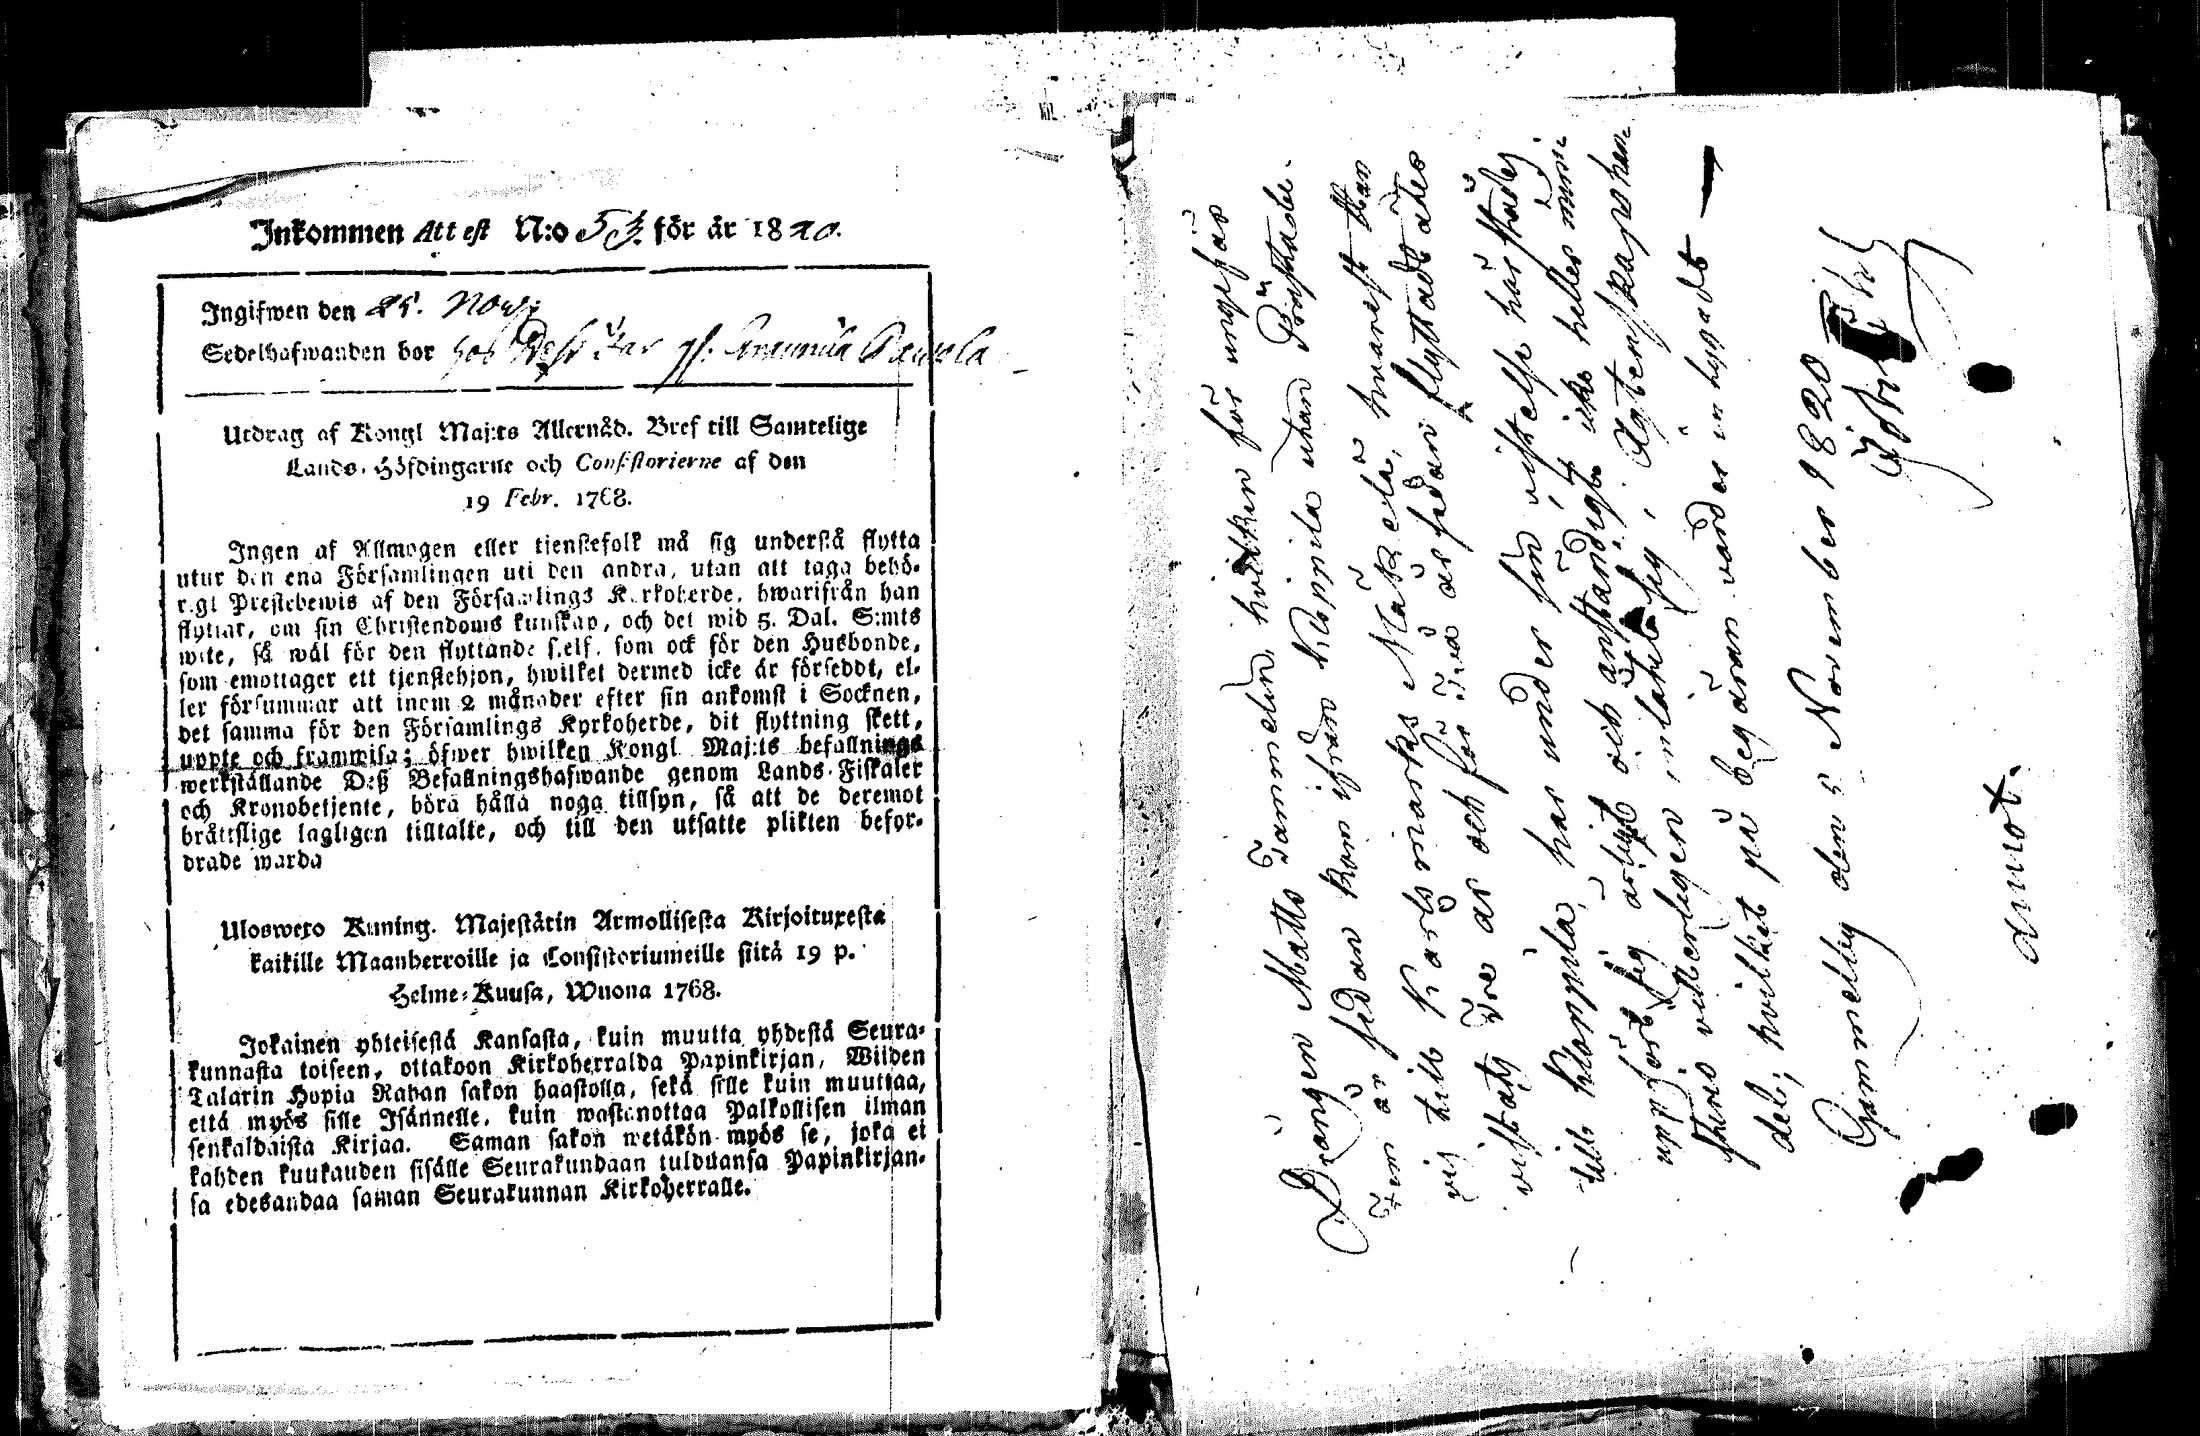 Inkommen Attest N:o 53. för år 1820.
Ingifwen den 25. Nov:
Sedelhafwanden bor hos
Utdrag af Kongl Maj:ts Allernåd. Bref till Samtelige
Lands-Höfdingarne och Consistorierne af den
19 Febr. 1768.
Ingen af Allmogen eller tienstefolk må sig understå flytta
utur den ena Församlingen uti den andra, utan att taga behö-
rigt Prestebewis af den Församlings Kyrkoherde, hwarifrån han
flyttar, om sin Christendoms kunskap, och det wid 5. Dal. S:mts
wite, så wäl för den flyttande self, som ock för den Husbonde,
som emottager ett tjenstehjon, hwilket dermed icke är förseddt, el-
ler försummar att inom 2 månader efter sin ankomst i Socknen,
det samma för den Församlings Kyrkoherde, dit flyttning skett,
uppte och framwisa; öfwer hwilken Kongl Maj:ts befallnings
werkställande Deß Befallningshafwande genom Lands-Fiskaler
och Kronobetjente, böra hålla noga tillsyn, så att de deremot
bråttslige lagligen tilltalte, och till den utsatte plikten befor-
drade warda
Uloswexo Kuning. Majestätin Armollisesta Kirjoituxesta
kaikille Maanherroille ja Consistoriumeille siitä 19 p.
Helme-Kuusa, Wuona 1768.
Jokainen yhteisestä Kansasta, kuin muutta yhdestä Seura-
kunnasta toiseen, ottakoon Kirkoherralda Papinkirjan, Wiiden
Talarin Hopia Rahan sakon haastolla, sekä sille kuin muuttaa,
että myös sille Isännelle, kuin wastanottaa Palkollisen ilman
senkaldaista Kirjaa. Saman sakon wetäkön myös se, joka ei
kahden kuukauden sisälle Seurakundaan tulduansa Papinkirjan-
sa edesandaa saman Seurakunnan Kirkoherralle.
Drängen Matts Tammelin, hvilken för ungefär
Fem år sedan kom ifrån Kloppila utan Prästade-
vis till Karlsmarks Mäkelä, hvarest Han
vistats Tre år och för Två år sedan flyttade åter
till Kloppila, har under sin vistelse härstädes
uppfört sig ärligt och anständigt ikke heller min-
sters vitterligen inlåtit sig i Ägtenskapshan-
del; hvilket på begäran varder intygadt —
Gammelby den 5 November 1820